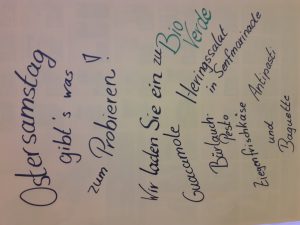 Ostersamstag
gibt's was
zum Probieren!
Wir laden Sie ein zu
Bio
Verde
Guacamole Herringssalat
in Senfmarinade
Bärlauch
Pesto
Ziegenfrischkäse Antipasti
und
Baguette